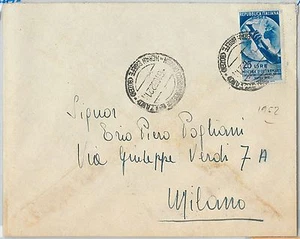 REPUBBLICA ITALIANA
25 LIRE
1952
Signor
Ezio Piero Pogliani
Via Giuseppe Verdi 7 A
Milano